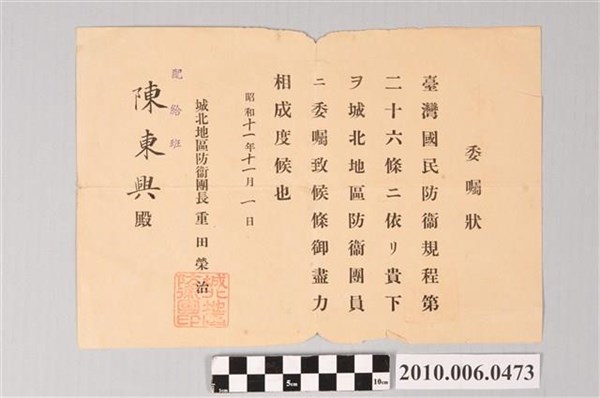 委囑狀
臺灣國民防衞規程第
二十六條ニ依リ貴下
ヲ城北地區防衞團員
ニ委囑致候條御盡力
相成度候也
昭和十一年十一月一日
城北地區防衞團長 重田榮治
配給班
陳東興殿
5cm
10cm
2010.006.0473